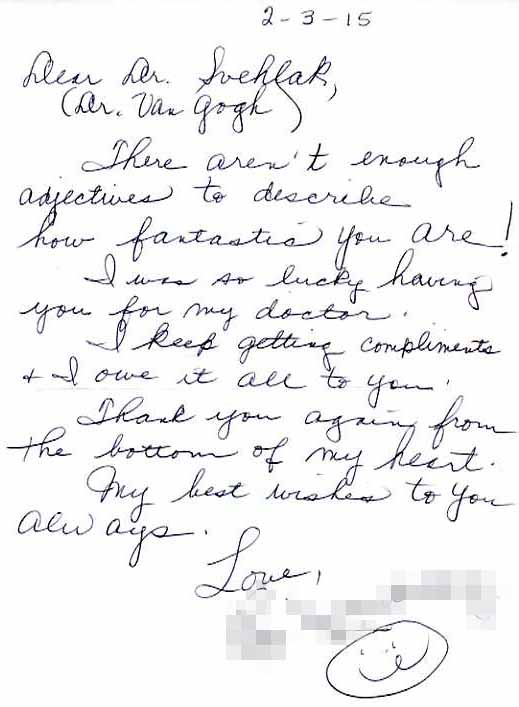 2-3-15
Dear Dr. Svehlak,
(Dr. Van Gogh)
There aren't enough
adjectives to describe
how fantastic you are!
I was so lucky having
you for my doctor.
I keep getting compliments
& I owe it all to you.
Thank you again from
the bottom of my heart.
My best wishes to you
always.
Love,